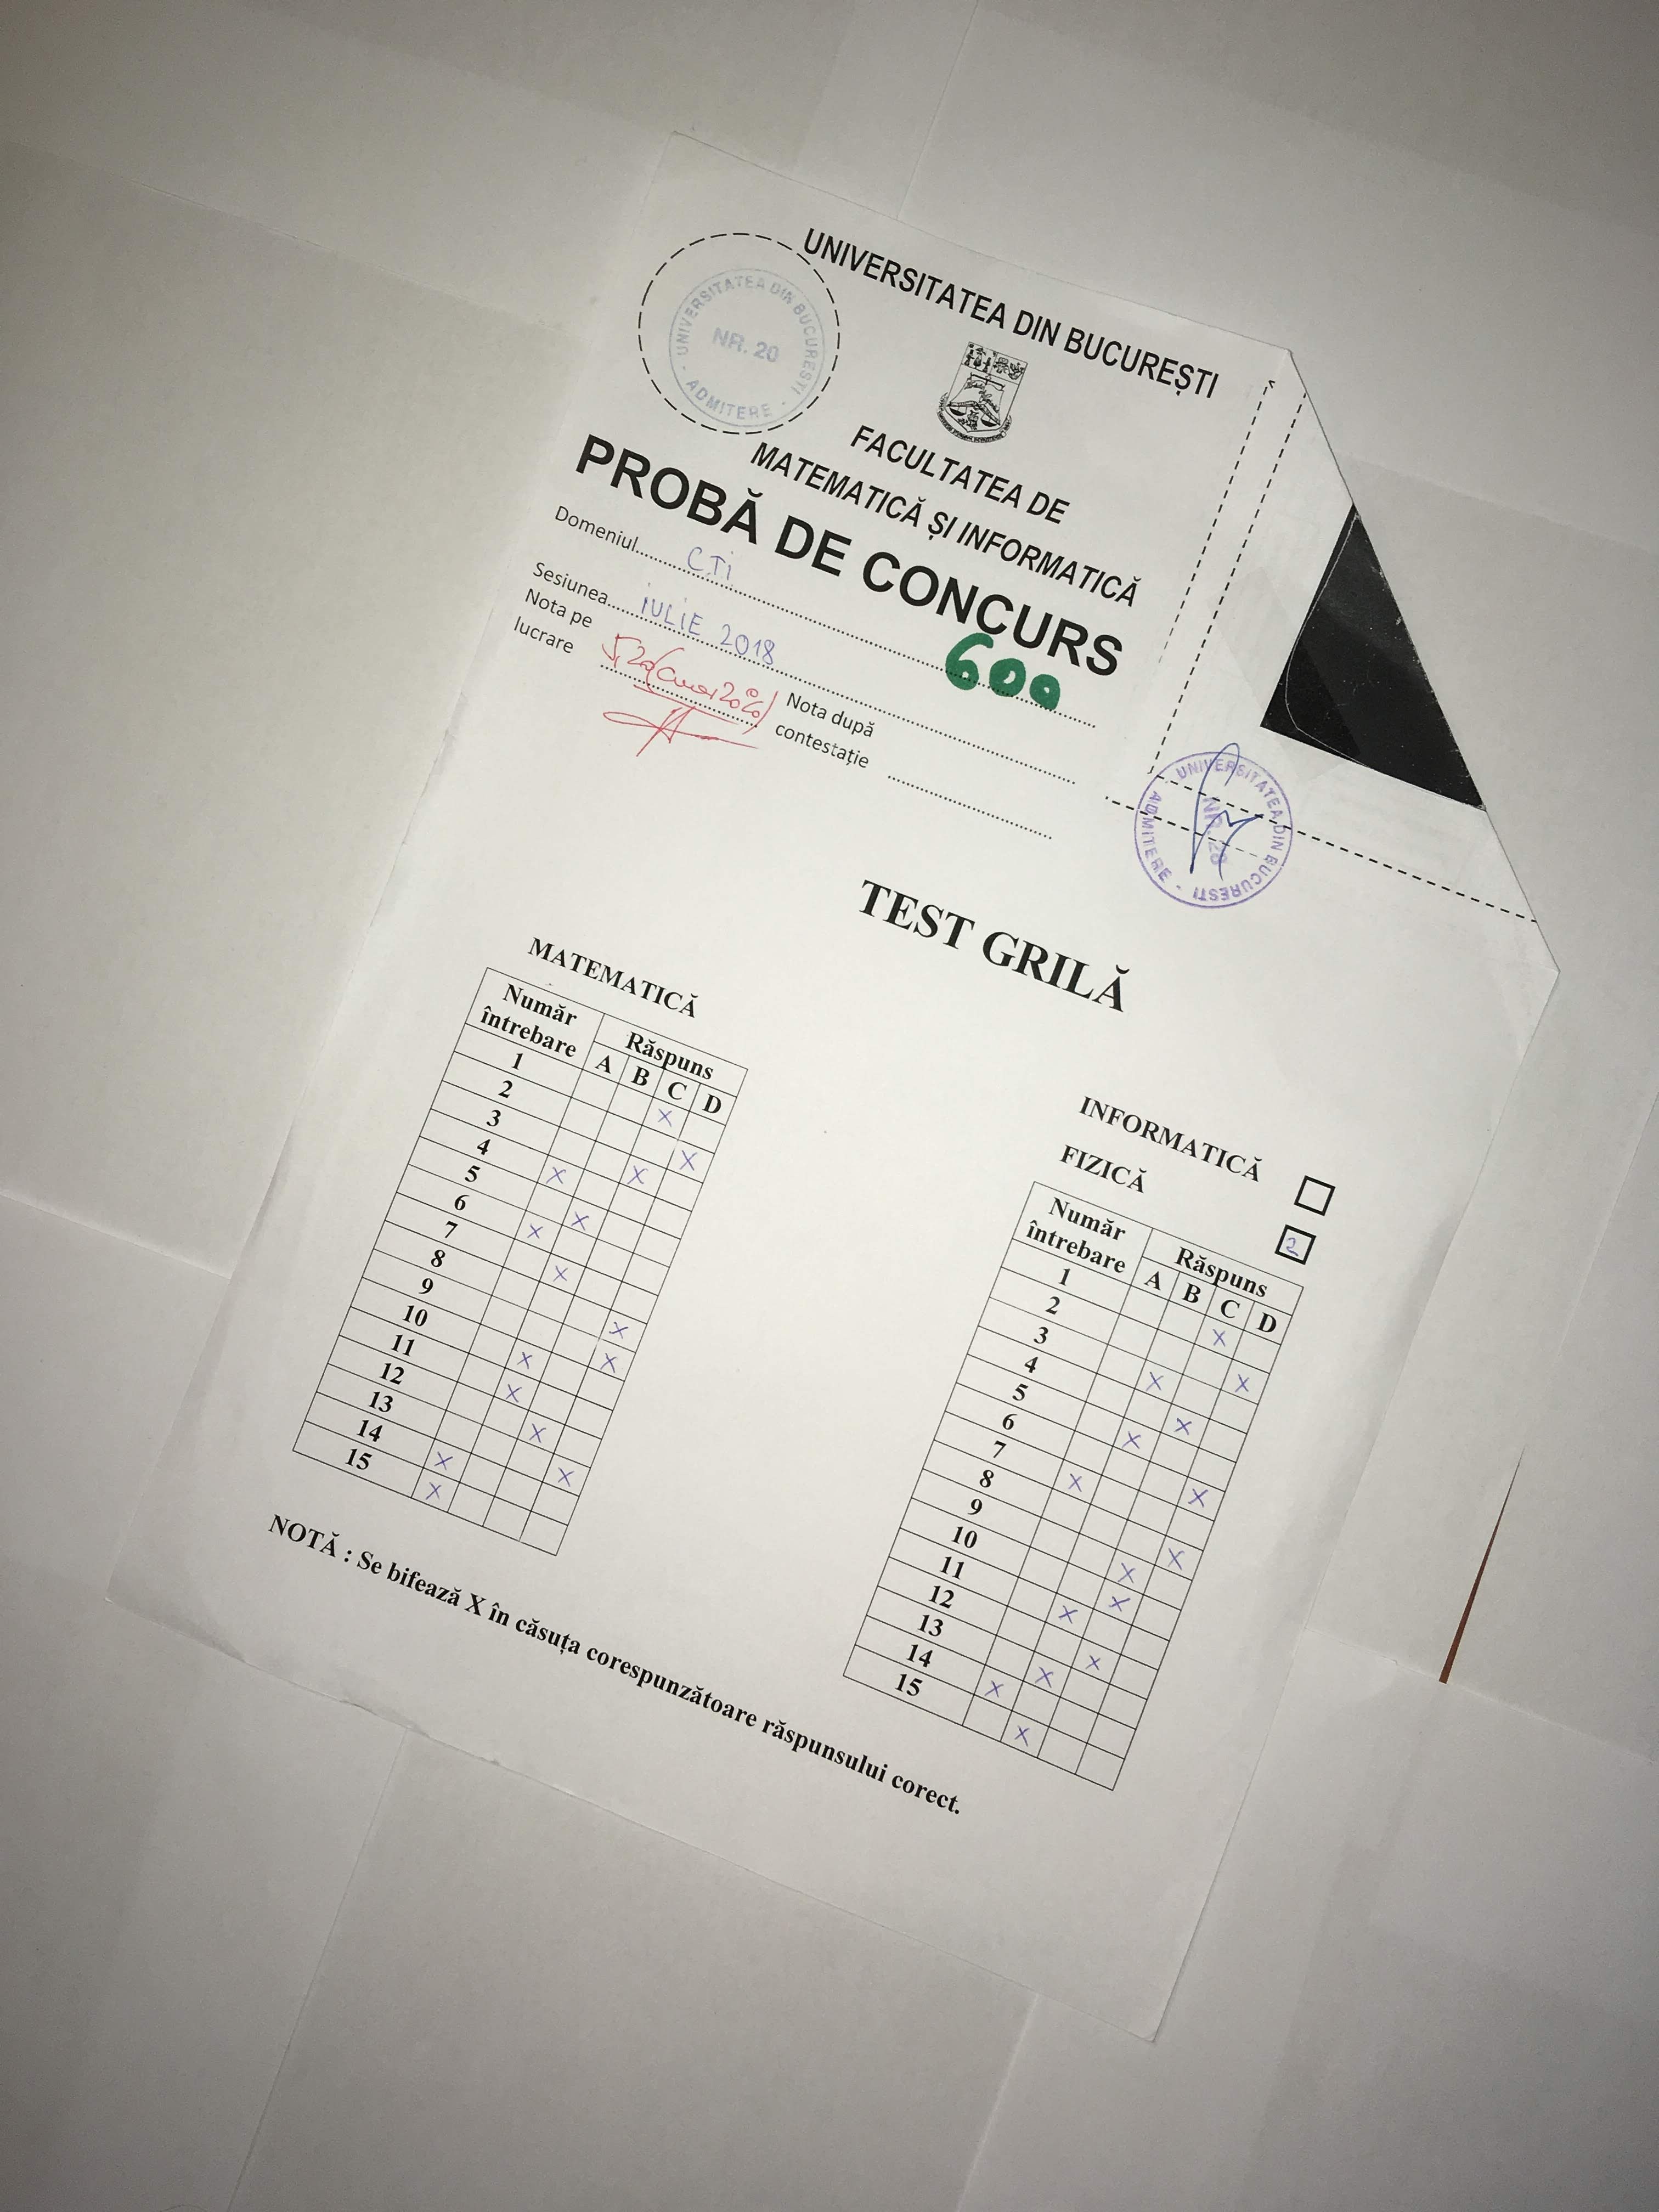 UNIVERSITATEA DIN BUCUREȘTI
UNIVERSITATEA DIN BUCURESTI - ADMITERE -
NR. 20
FACULTATEA DE
MATEMATICĂ ȘI INFORMATICĂ
PROBĂ DE CONCURS
Domeniul CTI
600
Sesiunea IULIE 2018
Nota pe lucrare 5,20
Nota după contestație
UNIVERSITATEA DIN BUCURESTI - ADMITERE -
TEST GRILĂ
MATEMATICĂ
Număr întrebare Răspuns
A B C D
1 X
2 X
3 X
4 X
5 X
6 X
7 X
8 X
9 X
10 X
11 X
12 X
13 X
14 X
15 X
INFORMATICĂ
FIZICĂ 2
Număr întrebare Răspuns
A B C D
1 X
2 X
3 X
4 X
5 X
6 X
7 X
8 X
9 X
10 X
11 X
12 X
13 X
14 X
15 X
NOTĂ : Se bifează X în căsuța corespunzătoare răspunsului corect.